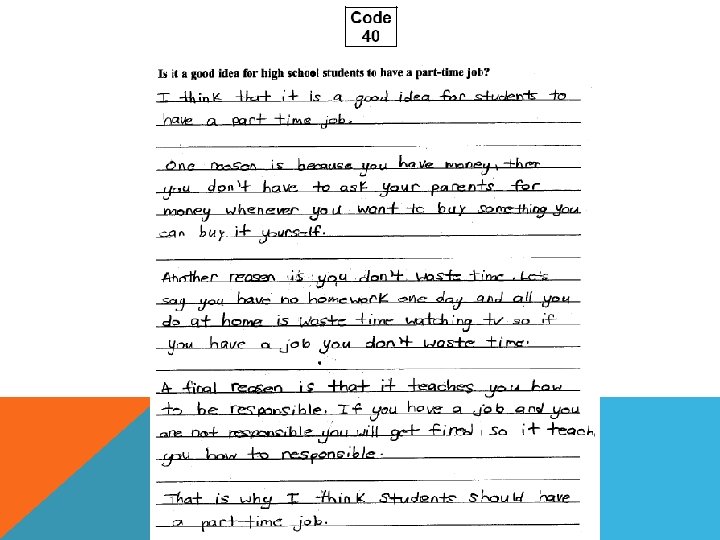 Code
40
Is it a good idea for high school students to have a part-time job?
I think that it is a good idea for students to
have a part time job.
One reason is because you have money, then
you don't have to ask your parents for
money whenever you want to buy something you
can buy it yourself.
Another reason is you don't waste time. Let's
say you have no homework one day and all you
do at home is waste time watching tv so if
you have a job you don't waste time.
A final reason is that it teaches you how
to be responsible. If you have a job and you
are not responsible you will get fired, so it teach,
you how to responsible.
That is why I think students should have
a part-time job.